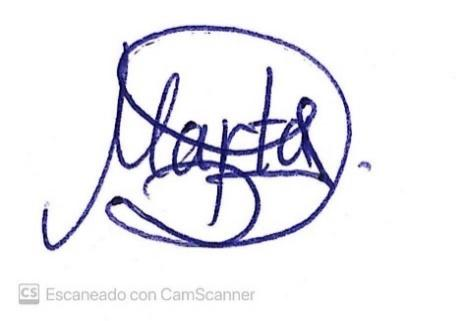 Marta
CS Escaneado con CamScanner